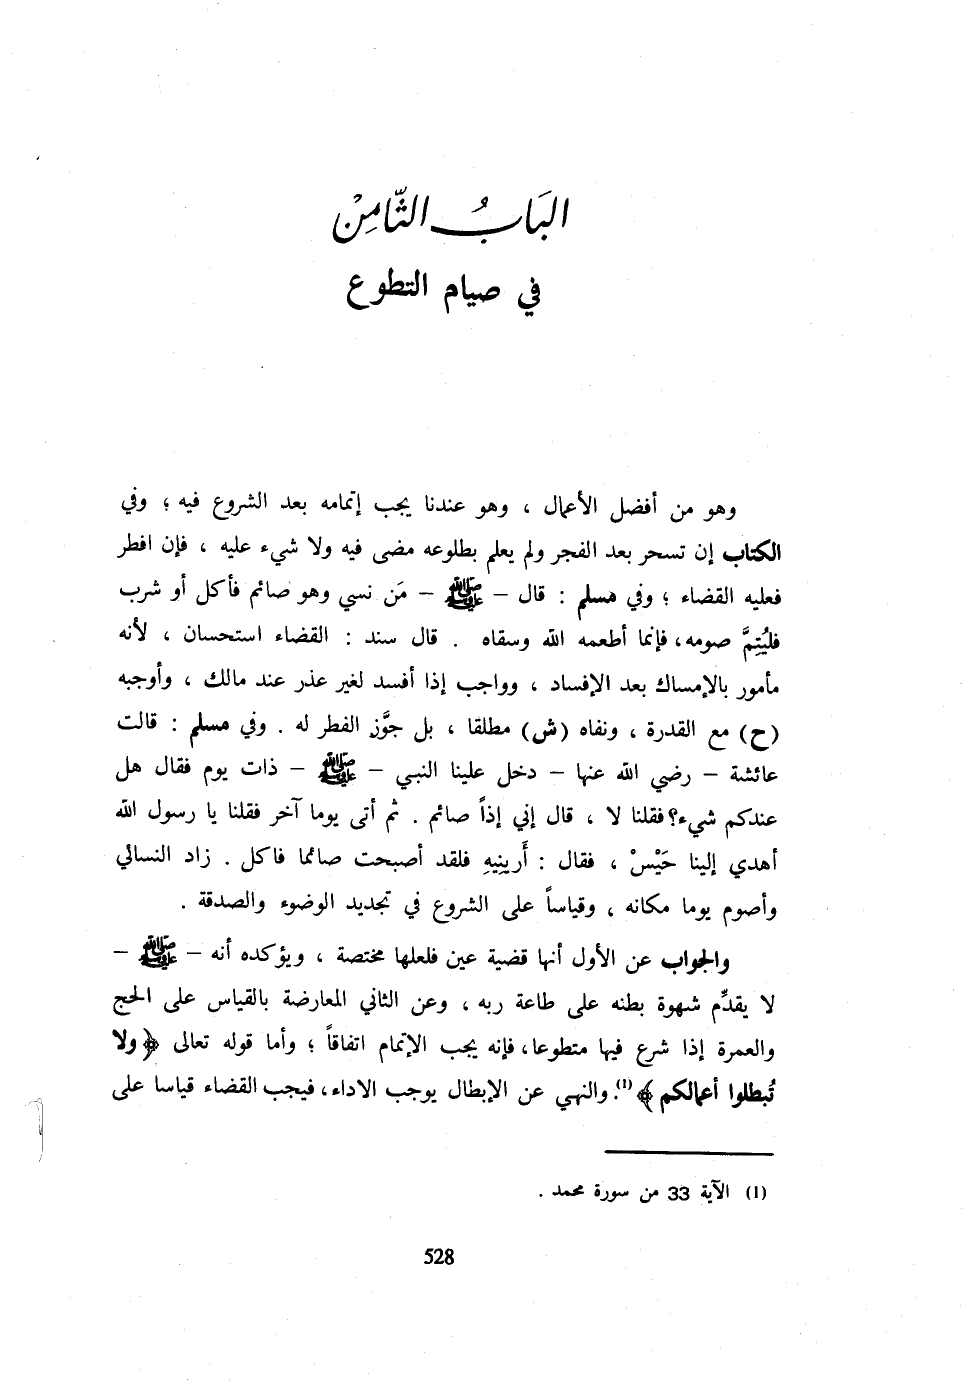 البَابُ الثَّامِنْ
في صيام التطوع
وهو من أفضل الأعمال ، وهو عندنا يجب إتمامه بعد الشروع فيه ؛ وفي
الكتاب إن تسحر بعد الفجر ولم يعلم بطلوعه مضى فيه ولا شيء عليه ، فإن افطر
فعليه القضاء ؛ وفي مسلم : قال – ﷺ – مَن نسي وهو صائم فأكل أو شرب
فليُتِمَّ صومه، فإنما أطعمه الله وسقاه . قال سند : القضاء استحسان ، لأنه
مأمور بالإمساك بعد الإفساد ، وواجب إذا أفسد لغير عذر عند مالك ، وأوجبه
(ح) مع القدرة ، ونفاه (ش) مطلقا ، بل جوَّز الفطر له . وفي مسلم : قالت
عائشة – رضي الله عنها – دخل علينا النبي – ﷺ – ذات يوم فقال هل
عندكم شيء؟ فقلنا لا ، قال إني إذاً صائم . ثم أتى يوما آخر فقلنا يا رسول الله
أهدي إلينا حَيْسْ ، فقال : أَرِينِيهِ فلقد أصبحت صائما فاكل . زاد النسائي
وأصوم يوما مكانه ، وقياساً على الشروع في تجديد الوضوء والصدقة .
والجواب عن الأول أنها قضية عين فلعلها مختصة ، ويؤكده أنه – ﷺ –
لا يقدِّم شهوة بطنه على طاعة ربه ، وعن الثاني المعارضة بالقياس على الحج
والعمرة إذا شرع فيها متطوعا، فإنه يجب الإتمام اتفاقاً ؛ وأما قوله تعالى ﴿ ولا
تُبطلوا أعمالكم ﴾ (1). والنهي عن الإبطال يوجب الاداء، فيجب القضاء قياسا على
(1) الآية 33 من سورة محمد .
528